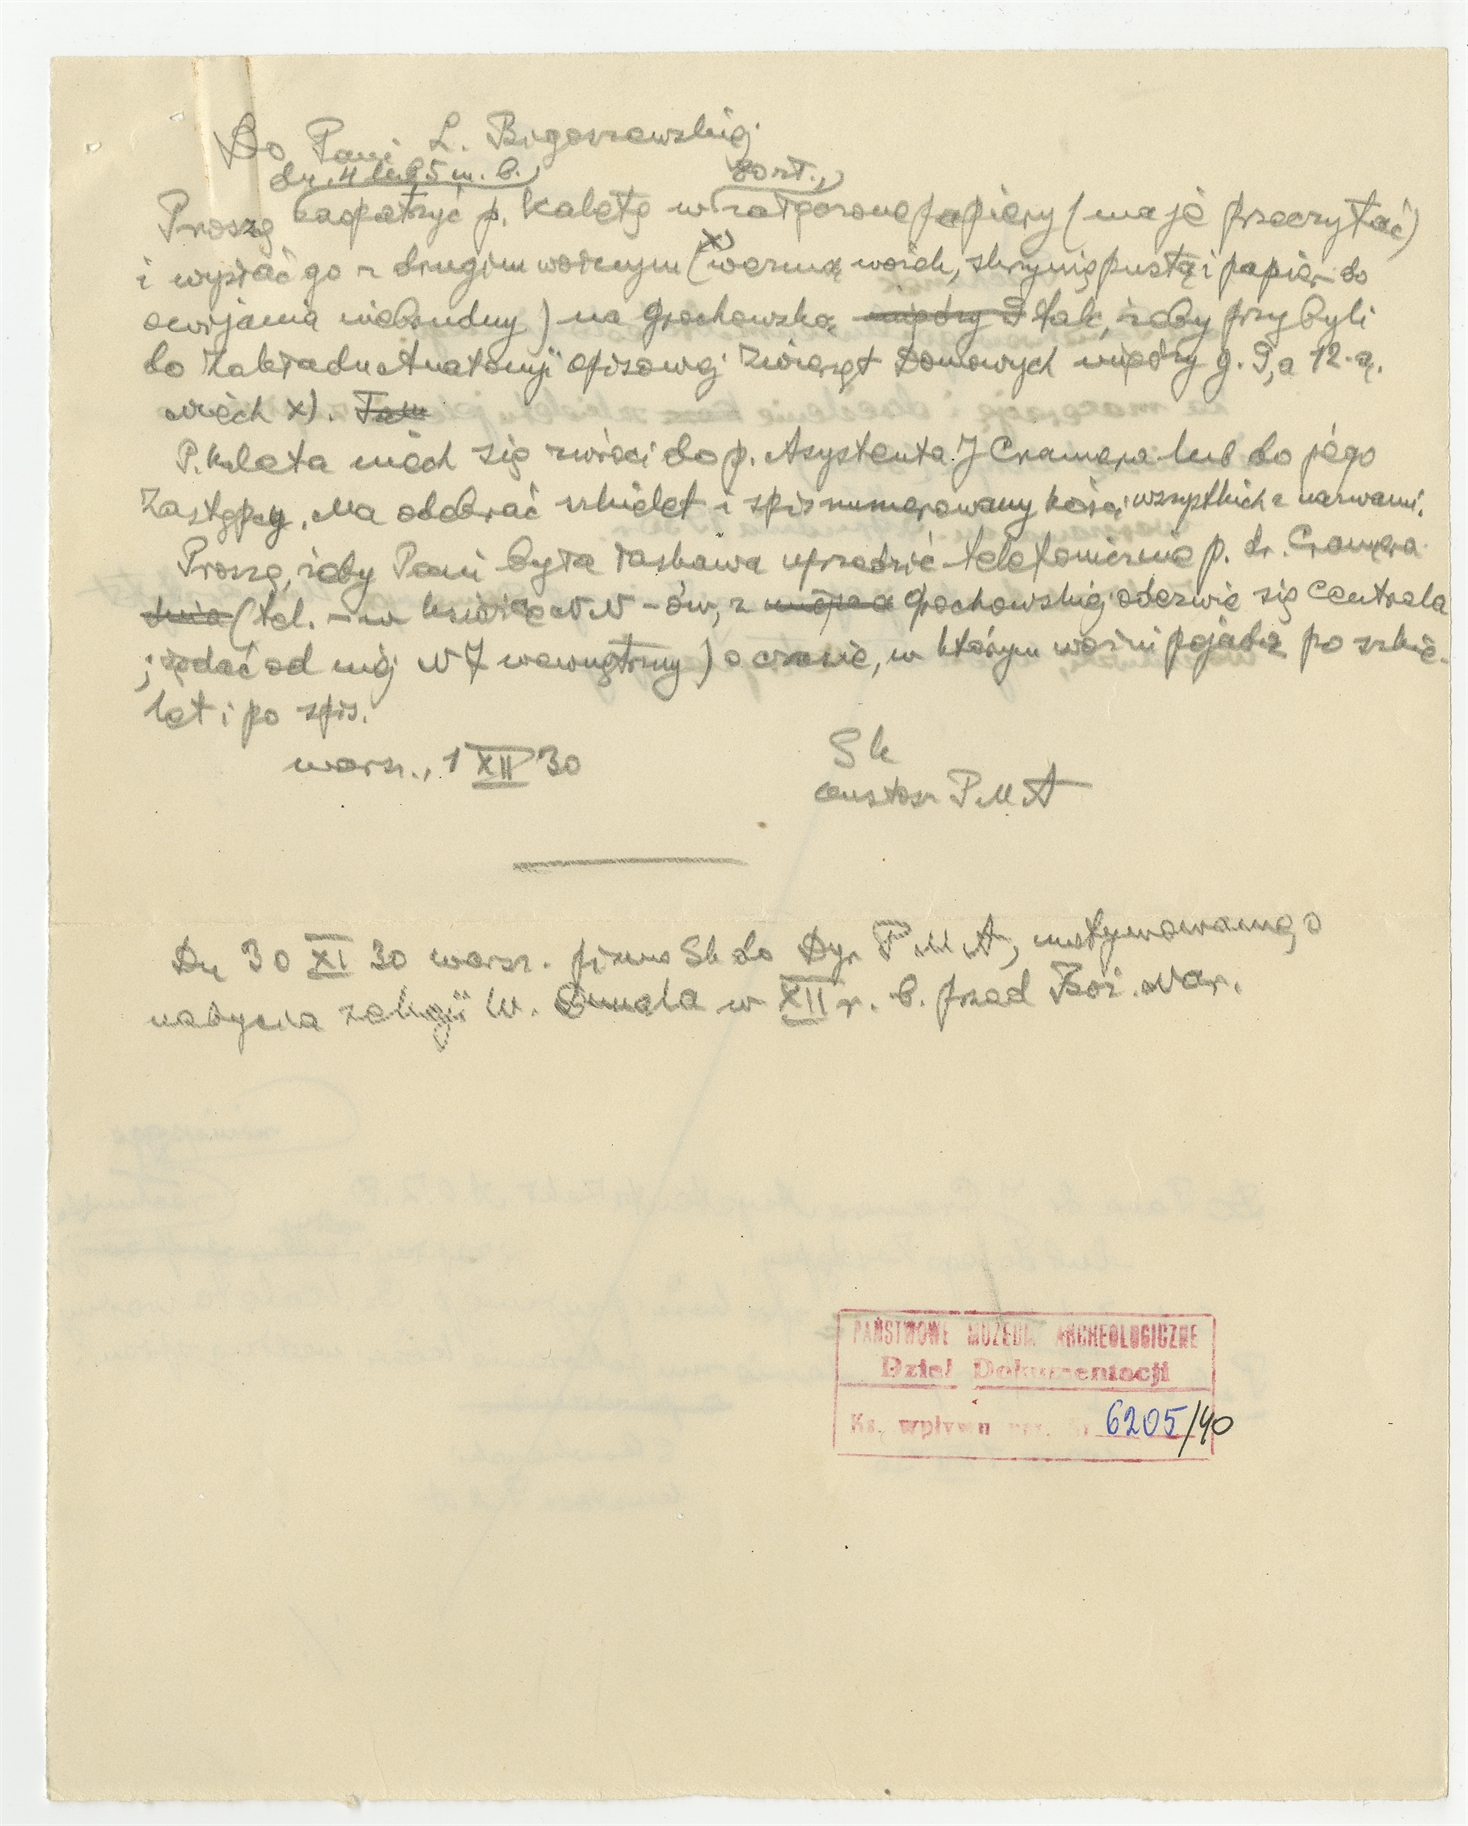 Do Pani L. Bogoszewskiej
dn. 4 lub 5 m. b.,
20 zł.,
Proszę zaopatrzyć p. Kaletę w załączone papiery (ma je przeczytać)
i wysłać go z drugim woźnym (x) wezmą wózek, skrzynię pustą i papier do
owijania niebrudny) na Grochowską między 9 tak, żeby przybyli
do Zakładu Anatomji opisowej Zwierząt Domowych między g. 9, a 12-ą.
niech x). Tam
P. Kaleta niech się zwróci do p. Asystenta J Cramera lub do jego
Zastępcy. Ma odebrać szkielet i spis numerowany kości wszystkich z nazwami.
Proszę, żeby Pani była łaskawa uprzedzić telefonicznie p. dr. Cramera
(tel. – w książce NN-ów, z Grochowskiej odezwie się centrala
; żądać od niej N 7 wewnętrzny) o czasie, w którym woźni pojadą po szkie-
let i po spis.
Warsz., 1 XII 30
Sk
custosz P M A
Dn 30 XI 30 Warsz. pismo Sk do Dyr P M A, motywowanego
nabycia kolekcji W. w XII r. b. przed Boż. Nar.
PAŃSTWOWE MUZEUM ARCHEOLOGICZNE
Dział Dokumentacji
Ks. wpływu 6205/40